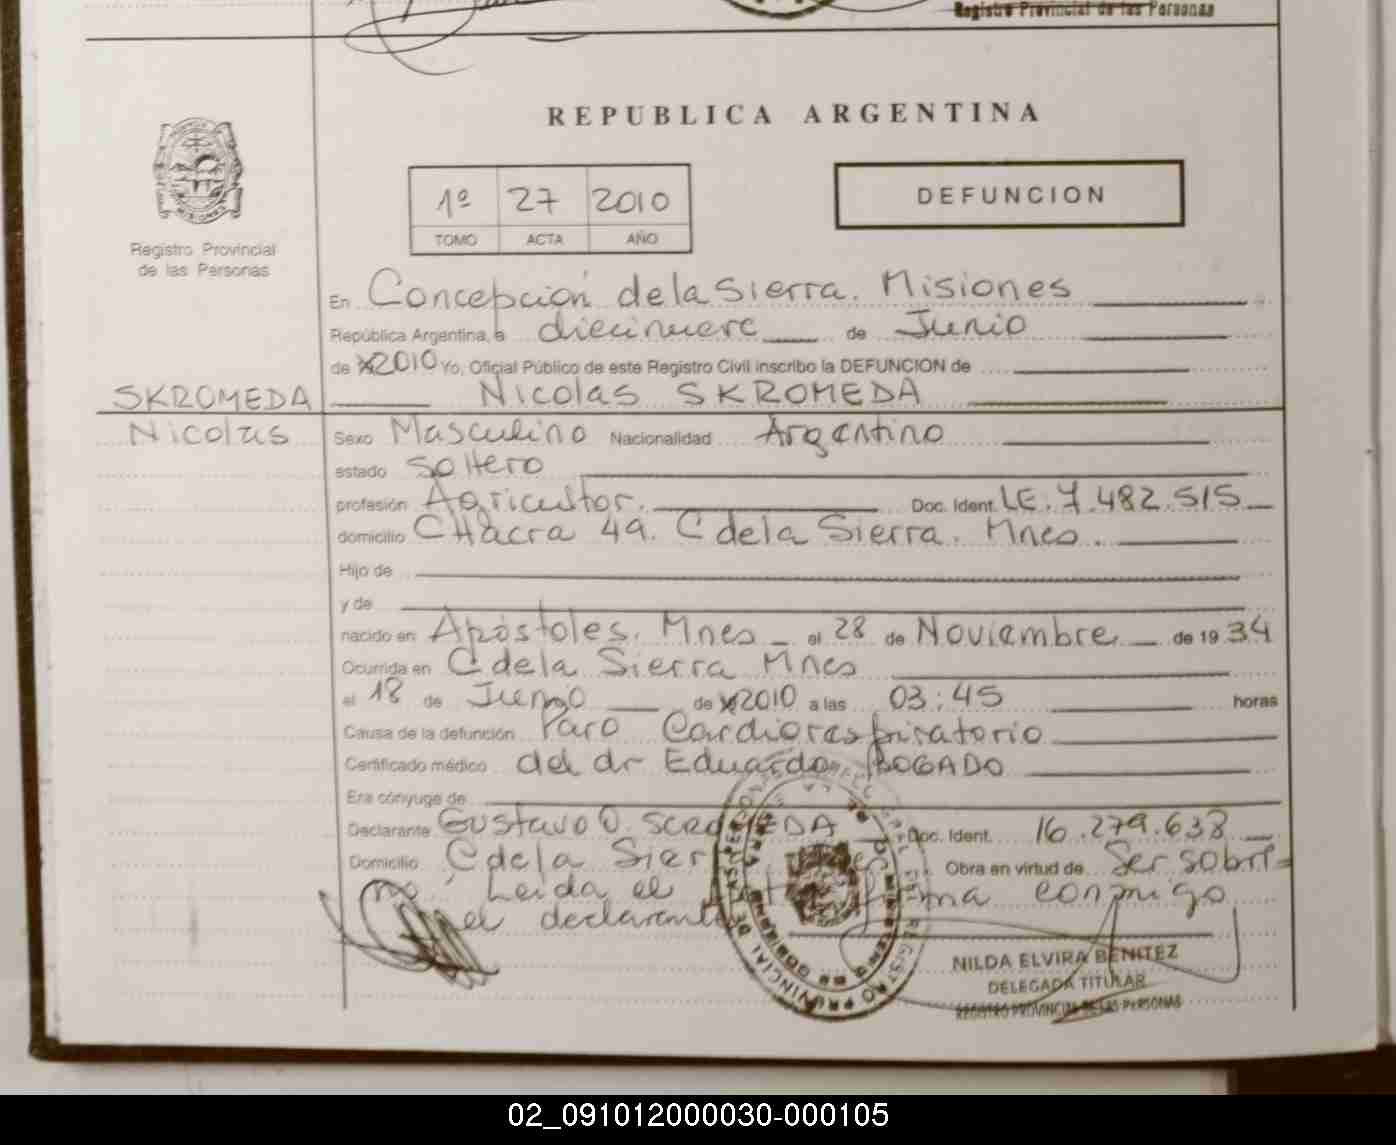 Registro Provincial de las Personas
REPUBLICA ARGENTINA
1º 27 2010
TOMO ACTA AÑO
DEFUNCION
Registro Provincial
de las Personas
En Concepción de la Sierra. Misiones
República Argentina, a diecinueve de Junio
de 2010 Yo, Oficial Público de este Registro Civil inscribo la DEFUNCION de
SKROMEDA
Nicolas SKROMEDA
Nicolas
Sexo Masculino Nacionalidad Argentino
estado Soltero
profesión Agricultor. Doc. Ident. LE. 7.482.515
domicilio CHacra 49. C de la Sierra. Mnes.
Hijo de
y de
nacido en Apóstoles. Mnes el 28 de Noviembre de 1934
Ocurrida en C de la Sierra Mnes
el 18 de Junio de 2010 a las 03:45 horas
Causa de la defunción Paro Cardiorespiratorio
Certificado médico del dr Eduardo BOGADO
Era cónyuge de
Declarante Gustavo O. Doc. Ident. 16.279.638
Domicilio C de la Obra en virtud de Ser sobri=
no. Leida el firma conmigo
el declarante
REGISTRO PROVINCIAL DE LAS PERSONAS
MINISTERIO DE GOBIERNO
NILDA ELVIRA BENITEZ
DELEGADA TITULAR
REGISTRO PROVINCIAL DE LAS PERSONAS
02_091012000030-000105